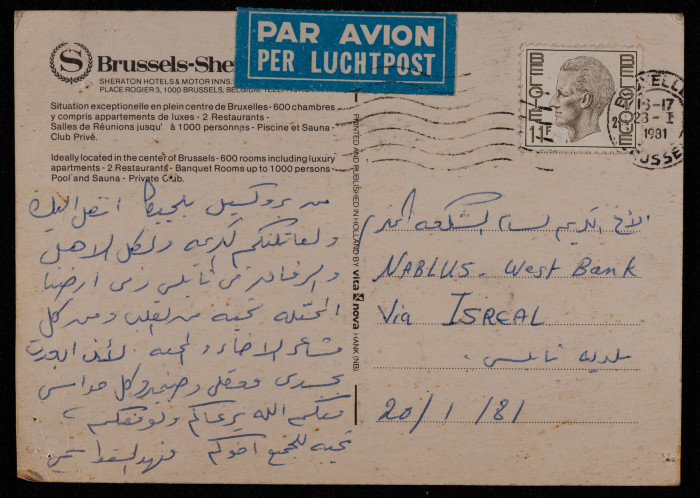 PAR AVION
PER LUCHTPOST
S Brussels-She
SHERATON HOTELS & MOTOR INNS,
PLACE ROGIER 3, 1000 BRUSSELS, BELGIUM
Situation exceptionelle en plein centre de Bruxelles - 600 chambres
y compris appartements de luxes - 2 Restaurants -
Salles de Réunions jusqu' à 1000 personnes - Piscine et Sauna -
Club Privé.
Ideally located in the center of Brussels - 600 rooms including luxury
apartments - 2 Restaurants - Banquet Rooms up to 1000 persons -
Pool and Sauna - Private Club.
PRINTED AND PUBLISHED IN HOLLAND BY vita nova HANK (NB)
BELGIE
BELGIQUE
11F
16-17
1981
من بروكسيل بلجيكا انتقل اليك
ولعائلتكم الكريمة ولكل الاهل
في نابلس ارضنا
المحتلة تحية من القلب ومن كل
مشاعر الاخاء والمحبة
وكل حواسي
معكم الله يرعاكم
تحية للجميع اخوكم فهد
الأخ الكريم بسام الشكعة
NABLUS - West Bank
Via ISREAL
بلدية نابلس
20/1/81